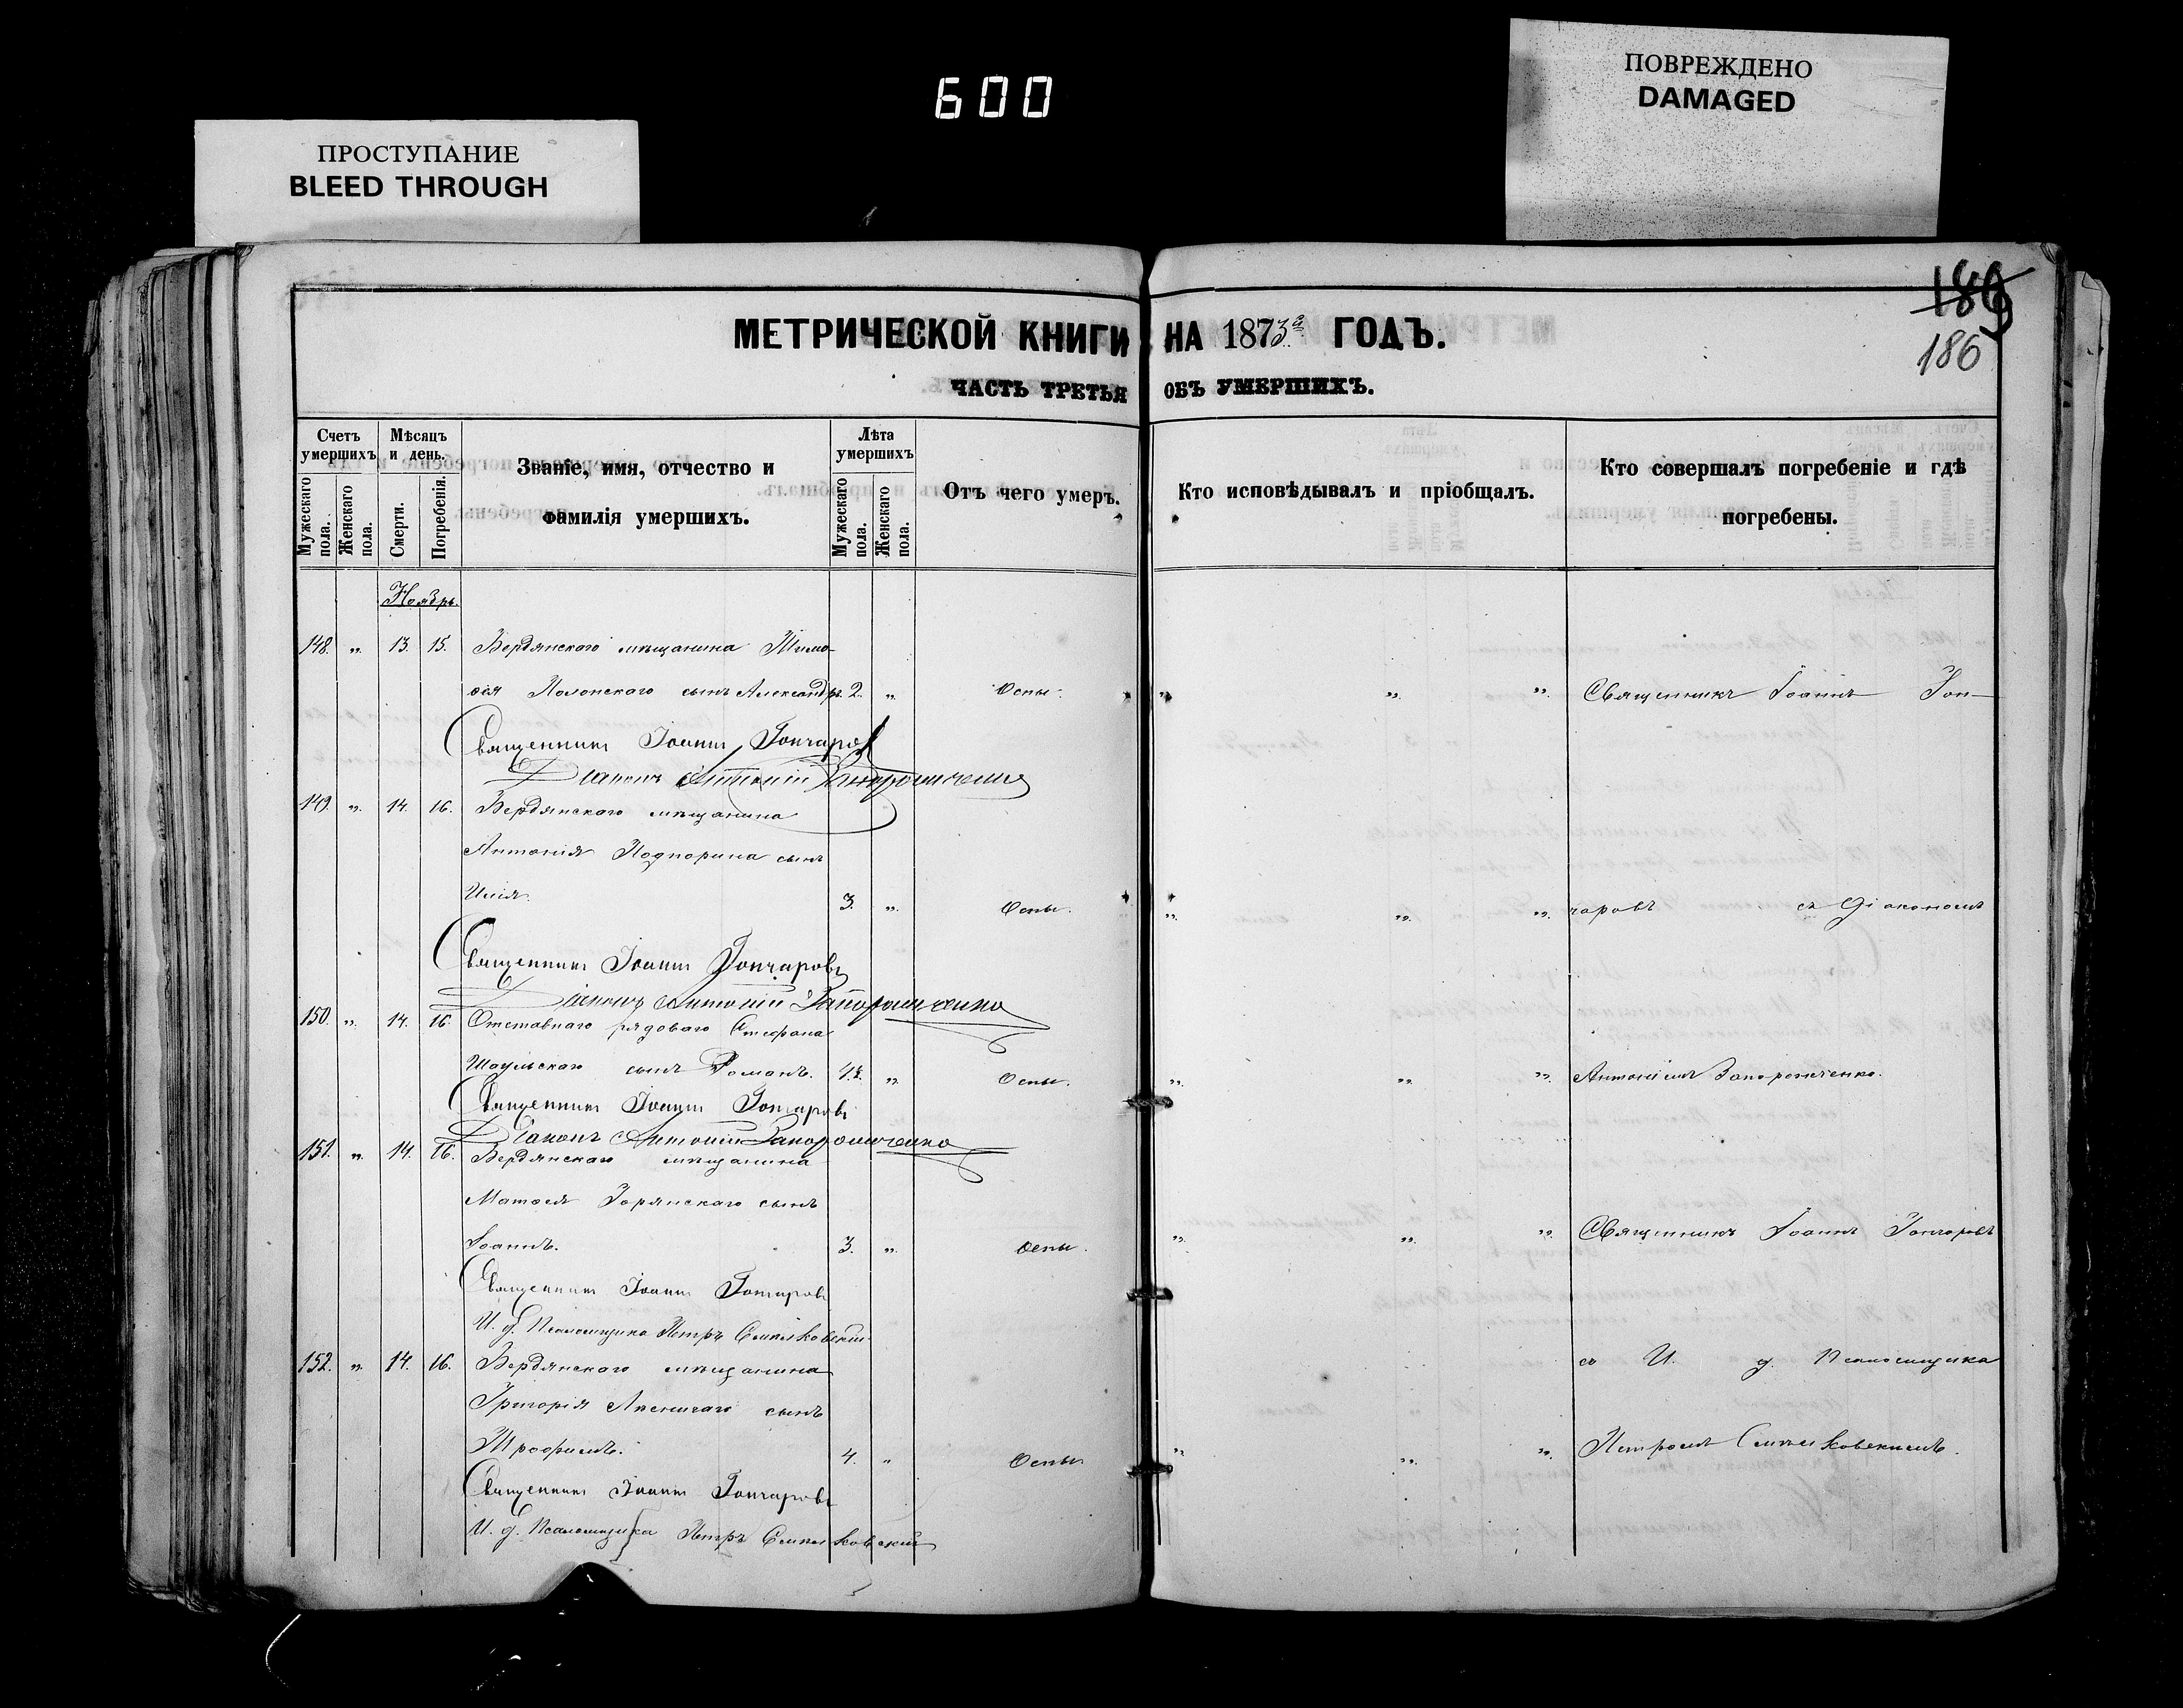 600
ПРОСТУПАНИЕ
BLEED THROUGH
ПОВРЕЖДЕНО
DAMAGED
186
186
МЕТРИЧЕСКОЙ КНИГИ НА 1873й ГОДЪ.
ЧАСТЬ ТРЕТЬЯ ОБЪ УМЕРШИХЪ.
Счетъ умершихъ
Мужескаго пола.
Женскаго пола.
Мѣсяцъ и день.
Смерти.
Погребенія.
Званіе, имя, отчество и фамилія умершихъ.
Лѣта умершихъ
Мужескаго пола.
Женскаго пола.
Отъ чего умеръ.
Кто исповѣдывалъ и пріобщалъ.
Кто совершалъ погребеніе и гдѣ погребены.
Ноябрь.
148. „ 13. 15. Бердянскаго мѣщанина Тимо-
ѳея Полонскаго сынъ Александръ 2. „ Оспы. „ „ „ Священникъ Іоаннъ Гон-
Священникъ Іоаннъ Гончаровъ
Діаконъ Антоній Запорожченко
149. „ 14. 16. Бердянскаго мѣщанина
Антонія Подпорина сынъ
Илія. 3. „ Оспы. „ „ „ чаровъ съ Діакономъ
Священникъ Іоаннъ Гончаровъ
Діаконъ Антоній Запорожченко
150. „ 14. 16. Отставнаго рядоваго Стефана
сынъ Романъ. „ Оспы. „ „ „ Антоніемъ Запорожченко.
Священникъ Іоаннъ Гончаровъ
Діаконъ Антоній Запорожченко
151. „ 14. 16. Бердянскаго мѣщанина
Матѳея Горянскаго сынъ
Іоаннъ. 3. „ Оспы. „ „ „ Священникъ Іоаннъ Гончаровъ
Священникъ Іоаннъ Гончаровъ
И. д. Псаломщика Петръ
152. „ 14. 16. Бердянскаго мѣщанина съ И. д. Псаломщика
Григорія сынъ
Трофимъ. 4. „ Оспы „ „ „ Петромъ
Священникъ Іоаннъ Гончаровъ
И. д. Псаломщика Петръ